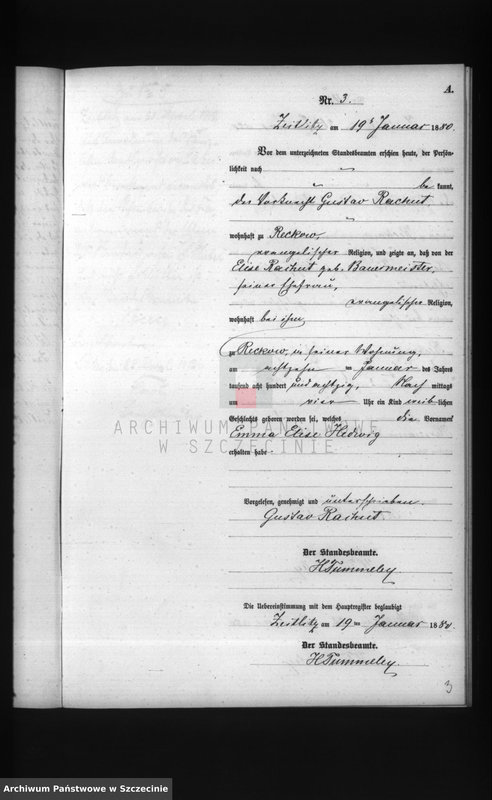 A.
Nr. 3.
Zeitlitz am 19t Januar 1880.
Vor dem unterzeichneten Standesbeamten erschien heute, der Persön-
lichkeit nach
be kannt,
der Gustav Rachut
wohnhaft zu Reckow,
evangelischer Religion, und zeigte an, daß von der
Elise Rachut geb. Bauermeister,
seiner Ehefrau,
evangelischer Religion,
wohnhaft bei ihm
zu Reckow, in seiner Wohnung,
am achtzehn ten Januar des Jahres
tausend acht hundert und achtzig, Nach mittags
um vier Uhr ein Kind weib lichen
Geschlechts geboren worden sei, welches die Vornamen
Emma Elise Hedwig
erhalten habe
ARCHIWUM PAŃSTWOWE
W SZCZECINIE
Vorgelesen, genehmigt und unterschrieben.
Gustav Rachut.
Der Standesbeamte.
H Tummeley.
Die Uebereinstimmung mit dem Hauptregister beglaubigt
Zeitlitz am 19 ten Januar 1880.
Der Standesbeamte.
H Tummeley.
3
Archiwum Państwowe w Szczecinie